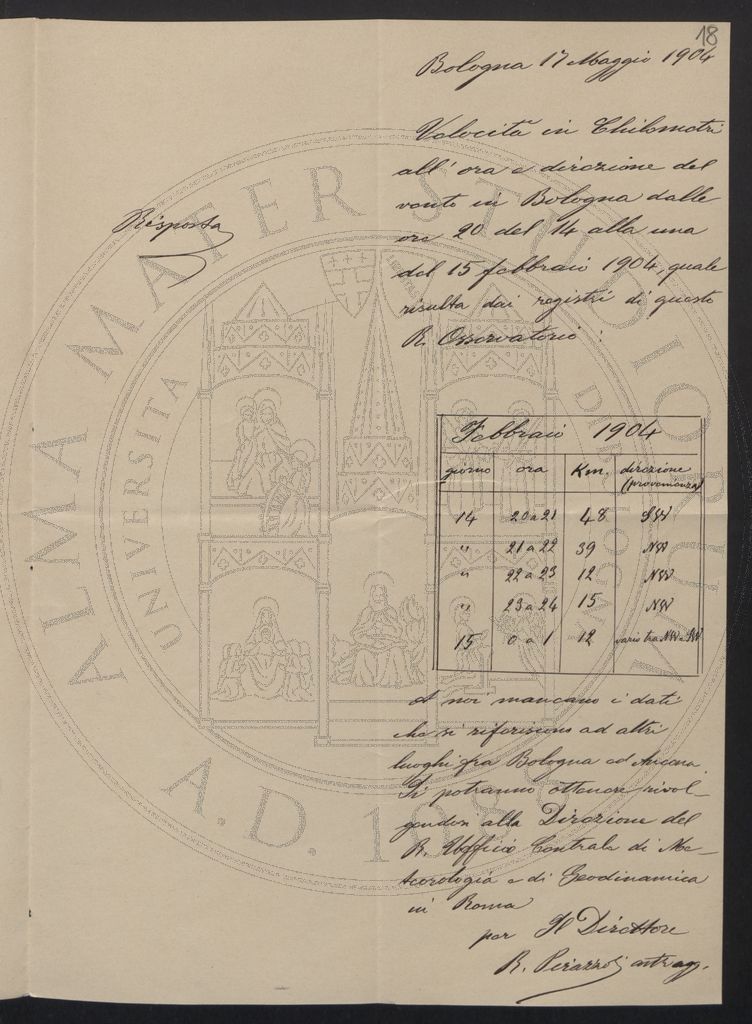 18
Bologna 17 Maggio 1904
Risposta
Velocità in Chilometri
all'ora e direzione del
vento in Bologna dalle
ore 20 del 14 alla una
del 15 febbraio 1904, quale
risulta dai registri di questo
R. Osservatorio:
Febbraio 1904
giorno ora Km. direzione
(provenienza)
14 20 a 21 48 SW
" 21 a 22 39 NW
" 22 a 23 12 NW
" 23 a 24 15 NW
15 0 a 1 12 vario tra NW e SW
A noi mancano i dati
che si riferiscono ad altri
luoghi fra Bologna ed Ancona.
Si potranno ottenere rivol-
gendosi alla Direzione del
R. Ufficio Centrale di Me-
teorologia e di Geodinamica
in Roma
per Il Direttore
R. Pirazzoli
ALMA MATER STUDIORUM
UNIVERSITA DI BOLOGNA
A.D. 1088